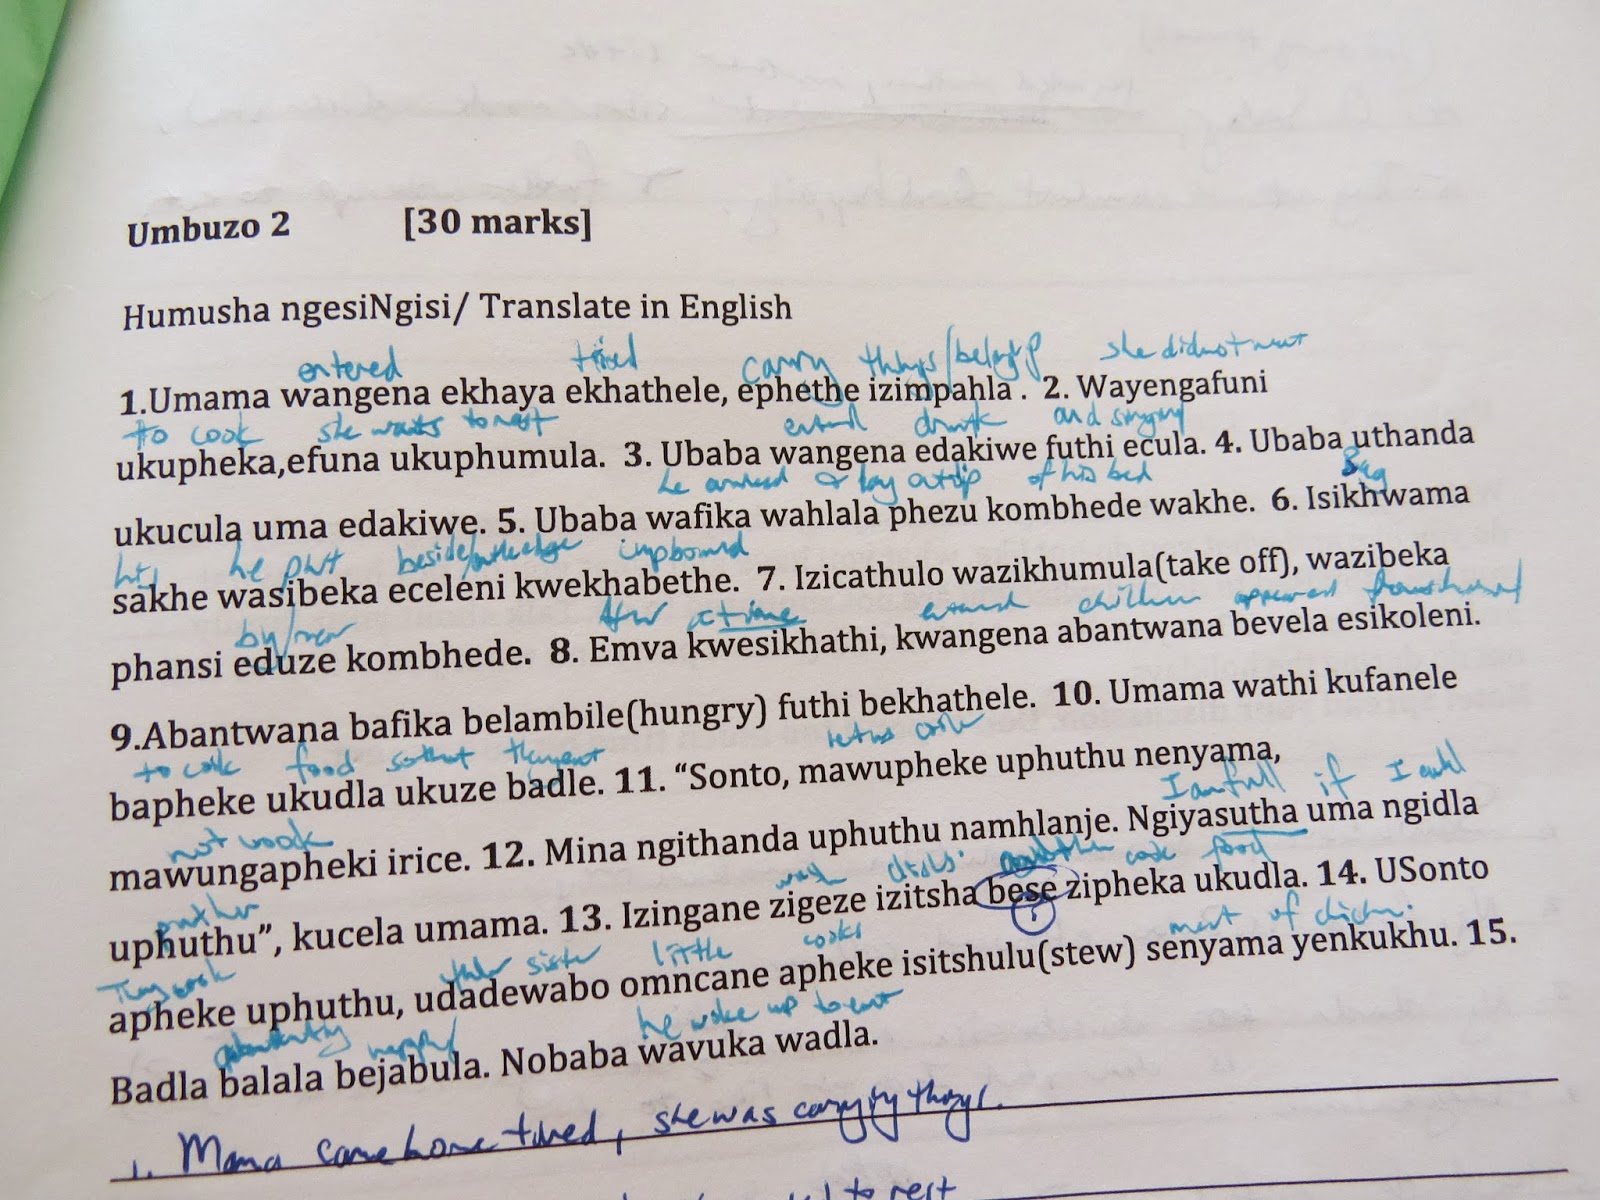 Umbuzo 2 [30 marks]
Humusha ngesiNgisi/ Translate in English
entered tired carry things/ she did not want
1.Umama wangena ekhaya ekhathele, ephethe izimpahla . 2. Wayengafuni
to cook she wants to rest drunk and singing
ukupheka,efuna ukuphumula. 3. Ubaba wangena edakiwe futhi ecula. 4. Ubaba uthanda
he arrived & lay atop of his bed Bag
ukucula uma edakiwe. 5. Ubaba wafika wahlala phezu kombhede wakhe. 6. Isikhwama
his he put
sakhe wasibeka eceleni kwekhabethe. 7. Izicathulo wazikhumula(take off), wazibeka
by/near a time children appeared
phansi eduze kombhede. 8. Emva kwesikhathi, kwangena abantwana bevela esikoleni.
9.Abantwana bafika belambile(hungry) futhi bekhathele. 10. Umama wathi kufanele
to cook food so that they eat let us cook
bapheke ukudla ukuze badle. 11. “Sonto, mawupheke uphuthu nenyama,
not cook I am full if I eat
mawungapheki irice. 12. Mina ngithanda uphuthu namhlanje. Ngiyasutha uma ngidla
wash dishes cook food
uphuthu”, kucela umama. 13. Izingane zigeze izitsha bese zipheka ukudla. 14. USonto
They cook sister little cooks meat of
apheke uphuthu, udadewabo omncane apheke isitshulu(stew) senyama yenkukhu. 15.
he woke up to eat
Badla balala bejabula. Nobaba wavuka wadla.
1. Mama came home tired, she was carrying things.
to rest